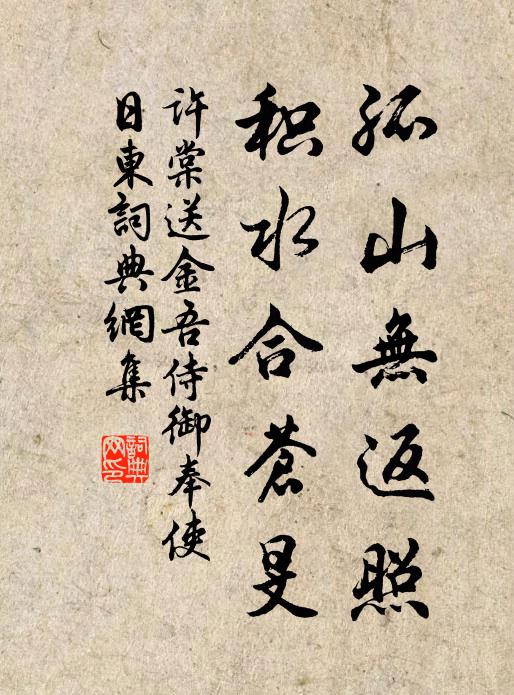 孤山無返照
积水合蒼旻
許棠送金吾侍御奉使
日東詞典網集
詞典
网印